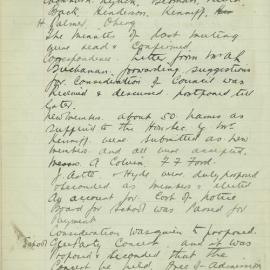 Henderson, Kenniff,
H Palmer, Oberg
The Minutes of last meeting
were read & Confirmed.
Correspondence. Letter from Mr A R
Buchanan, forwarding suggestions
for Consideration of Council was
Received & discussed postponed till
later.
new members. about 50 names as
supplied to the Hon Sec by Mr
Kenniff were submitted as new
members and all were accepted.
A Colwin F J Ford.
J Astle Hyde were duly proposed
& seconded as members & elected
An account for Cost of notice
Board for (School) was Passed for
Payment
Consideration was given to postponed
Party Concert and it was
Proposed & seconded that the
Concert be held Free & Admission